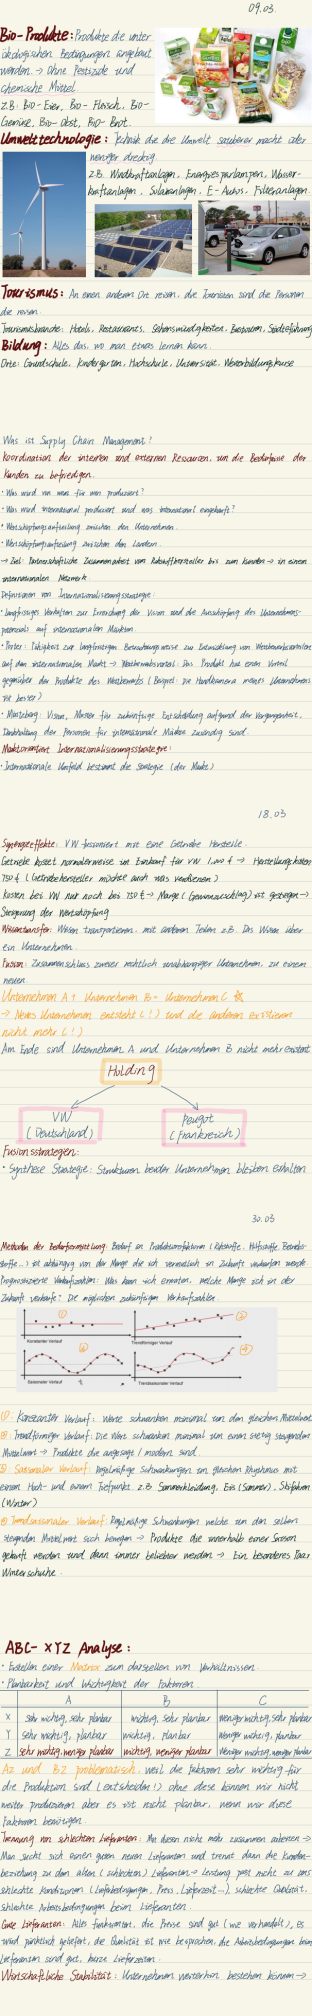 09.03.
Bio-Produkte: Produkte die unter
ökologischen Bedingungen angebaut
werden → Ohne Pestizide und
chemische Mittel
z.B. Bio-Eier, Bio-Fleisch, Bio-
Gemüse, Bio-Obst, Bio-Brot.
Umwelttechnologie: Technik die die Umwelt sauberer macht oder
weniger dreckig.
z.B. Windkraftanlagen, Energiesparlampen, Wasser-
kraftanlagen, Solaranlagen, E-Autos, Filteranlagen.
Tourismus: An einen anderen Ort reisen, die Touristen sind die Personen
die reisen.
Tourismusbranche: Hotels, Restaurants, Sehenswürdigkeiten, Bustouren, Stadtführung
Bildung: Alles das, wo man etwas lernen kann.
Orte: Grundschule, Kindergarten, Hochschule, Universität, Weiterbildungskurse
Was ist Supply Chain Management?
Koordination der internen und externen Ressourcen, um die Bedürfnisse der
Kunden zu befriedigen.
• Was wird von wem für wen produziert?
• Was wird international produziert und was international eingekauft?
• Wertschöpfungsaufteilung zwischen den Unternehmen.
• Wertschöpfungsaufteilung zwischen den Ländern.
→ Ziel: Partnerschaftliche Zusammenarbeit vom Rohstoffhersteller bis zum Kunden → in einem
internationalen Netzwerk
Definitionen von Internationalisierungsstrategie:
• langfristiges Verhalten zur Erreichung der Vision und die Ausschöpfung des Unternehmens-
potenzials auf internationalen Märkten.
• Porter: Fähigkeit zur langfristigen Beziehungsweise zu Entwicklung von Wettbewerbsvorteilen
auf dem internationalen Markt → Wettbewerbsvorteil: Das Produkt hat einen Vorteil
gegenüber der Produkte des Wettbewerbs (Beispiel: Die Handkamera meines Unternehmens
ist besser)
• Mintzberg: Vision, Muster für zukünftige Entscheidung aufgrund der Vergangenheit,
Denkhaltung der Personen für internationale Märkte zuständig sind.
Marktorientiert Internationalisierungsstrategie:
• Internationale Umfeld bestimmt die Strategie (der Markt)
18.03
Synergieeffekte: VW fusioniert mit eine Getriebe Herstelle.
Getriebe kostet normalerweise im Einkauf für VW 1.000 € → Herstellungskosten
750 € (Getriebehersteller möchte auch was verdienen)
Kosten bei VW nur noch bei 750 € → Marge (Gewinnzuschlag) ist gestiegen →
Steigerung der Wertschöpfung
Wissentransfer: Wissen transportieren, mit anderen Teilen z.B. Das Wissen über
ein Unternehmen.
Fusion: Zusammenschluss zweier rechtlich unabhängiger Unternehmen, zu einem
neuen
Unternehmen A + Unternehmen B = Unternehmen C
→ Neues Unternehmen entsteht (!) und die anderen existieren
nicht mehr (!)
Am Ende sind Unternehmen A und Unternehmen B nicht mehr existent
Holding
VW
(Deutschland)
Peugot
(Frankreich)
Fusionsstrategien:
• Synthese Strategie: Strukturen beider Unternehmen bleiben erhalten
30.03
Methoden der Bedarfsermittlung: Bedarf an Produktionsfaktoren (Rohstoffe, Hilfsstoffe, Betriebs-
stoffe...) ist abhängig von der Menge die ich vermutlich in Zukunft verkaufen werde.
Prognostizierte Verkaufszahlen: Was kann ich erwarten, welche Menge ich in der
Zukunft verkaufe? Die möglichen zukünftigen Verkaufszahlen.
①
②
Konstanter Verlauf
Trendförmiger Verlauf
③
④
Saisonaler Verlauf
Trendsaisonaler Verlauf
①: Konstanter Verlauf: Werte schwanken minimal um den gleichen Mittelwert
②: Trendförmiger Verlauf: Die Werte schwanken minimal um einen stetig steigenden
Mittelwert → Produkte die angesagt / modern sind.
③: Saisonaler Verlauf: Regelmäßige Schwankungen im gleichen Rhythmus mit
einem Hoch- und einem Tiefpunkt z.B. Sommerkleidung, Eis (Sommer), Skifahren
(Winter)
④ Trendsaisonaler Verlauf: Regelmäßige Schwankungen welche um den selben
steigenden Mittelwert sich bewegen → Produkte die innerhalb einer Saison
gekauft werden und dann immer beliebter werden → Ein besonderes Paar
Winterschuhe.
ABC-XYZ Analyse:
• Erstellen einer Matrix zum darstellen von Verhältnissen.
• Planbarkeit und Wichtigkeit der Faktoren.
A B C
X sehr wichtig, sehr planbar wichtig, sehr planbar weniger wichtig, sehr planbar
Y sehr wichtig, planbar wichtig, planbar weniger wichtig, planbar
Z sehr wichtig, weniger planbar wichtig, weniger planbar weniger wichtig, weniger planbar
AZ und BZ problematisch, weil die Faktoren sehr wichtig für
die Produktion sind (entscheiden!) ohne diese können wir nicht
weiter produzieren aber es ist nicht planbar, wenn wir diese
Faktoren benötigen.
Trennung von schlechten Lieferanten: Mit diesen nicht mehr zusammen arbeiten →
Man sucht sich einen guten neuen Lieferanten und trennt dann die Kunden-
beziehung zu dem alten (schlechten) Lieferanten → Leistung passt nicht zu uns
schlechte Konditionen (Lieferbedingungen, Preis, Lieferzeit...), schlechte Qualität,
schlechte Arbeitsbedingungen beim Lieferanten.
Gute Lieferanten: Alles funktioniert, die Preise sind gut (wie verhandelt), es
wird pünktlich geliefert, die Qualität ist wie besprochen, die Arbeitsbedingungen beim
Lieferanten sind gut, kurze Lieferzeiten.
Wirtschaftliche Stabilität: Unternehmen weiterhin bestehen können →